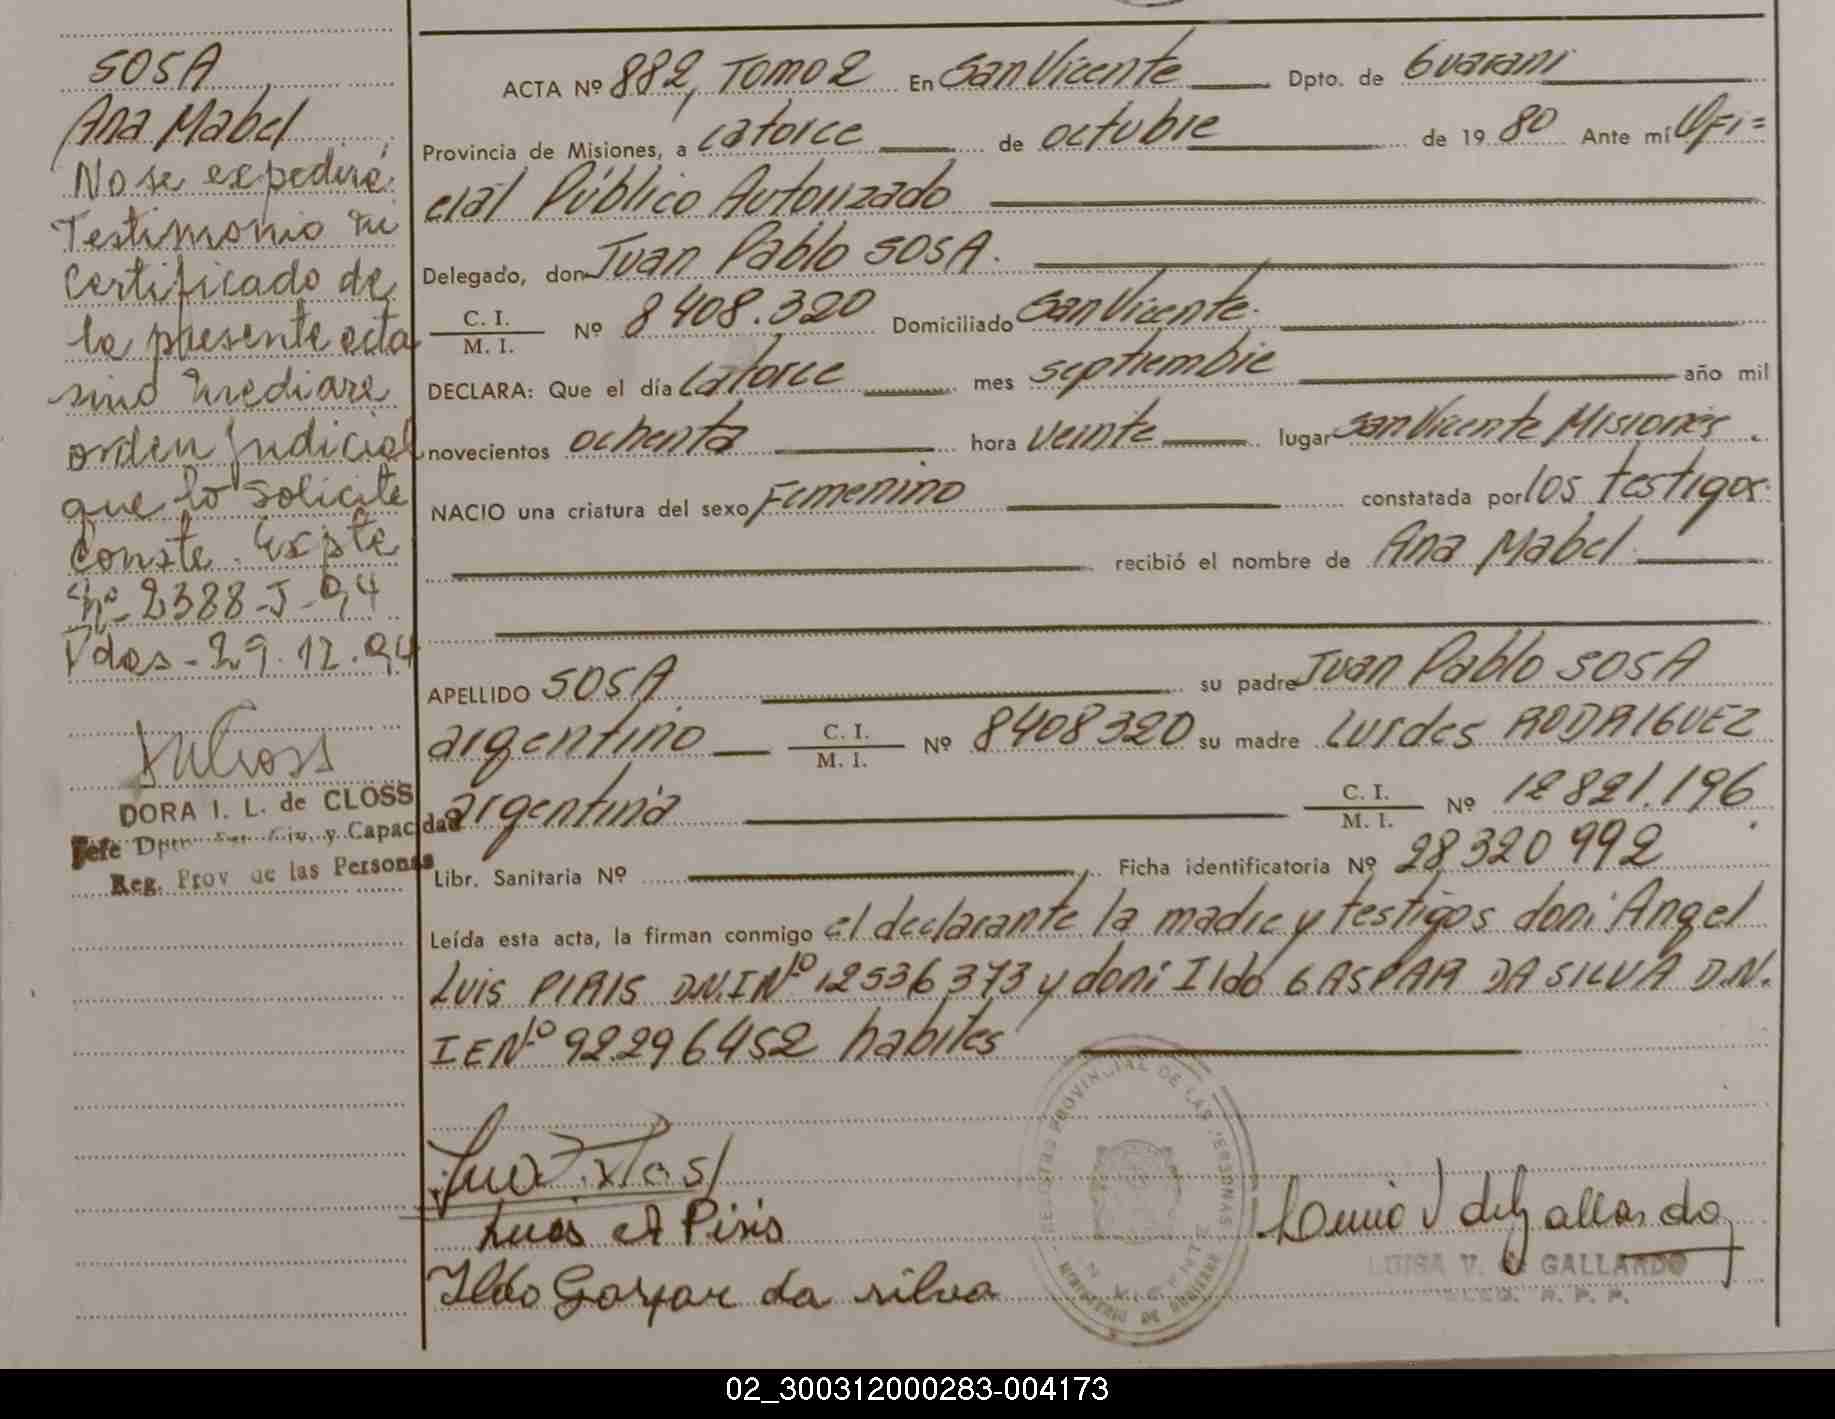 SOSA
Ana Mabel
No se expedirá
Testimonio ni
Certificado de
la presente acta
sino mediare
orden judicial
que lo solicite
Conste. Expte
Nº 2388-J-94
Pdas - 29.12.94
DORA I. L. de CLOSS
Jefe Dpto. y Capacidad
Reg. Prov de las Personas
ACTA Nº 882, Tomo 2 En San Vicente Dpto. de Guarani
Provincia de Misiones, a catorce de octubre de 19 80 Ante mí Ofi=
cial Público Autorizado
Delegado, don Juan Pablo SOSA.
C. I. / M. I. Nº 8408.320 Domiciliado San Vicente.
DECLARA: Que el día catorce mes septiembre año mil
novecientos ochenta hora veinte lugar San Vicente Misiones
NACIO una criatura del sexo Femenino constatada por los testigos
recibió el nombre de Ana Mabel
APELLIDO SOSA su padre Juan Pablo SOSA
argentino C. I. / M. I. Nº 8408320 su madre Lurdes RODRIGUEZ
argentina C. I. / M. I. Nº 12821.196
Libr. Sanitaria Nº Ficha identificatoria Nº 28,320 992
Leída esta acta, la firman conmigo el declarante la madre y testigos don: Angel
Luis PIRIS D.N.I Nº 12536,373 y don: Ildo GASPAR DA SILVA D.N.
I E Nº 92.296452 habiles
Luis A Piris
Ildo Gaspar da silva
REGISTRO PROVINCIAL DE LAS PERSONAS
MINISTERIO DE GOBIERNO
LUISA V. de GALLARDO
02_300312000283-004173